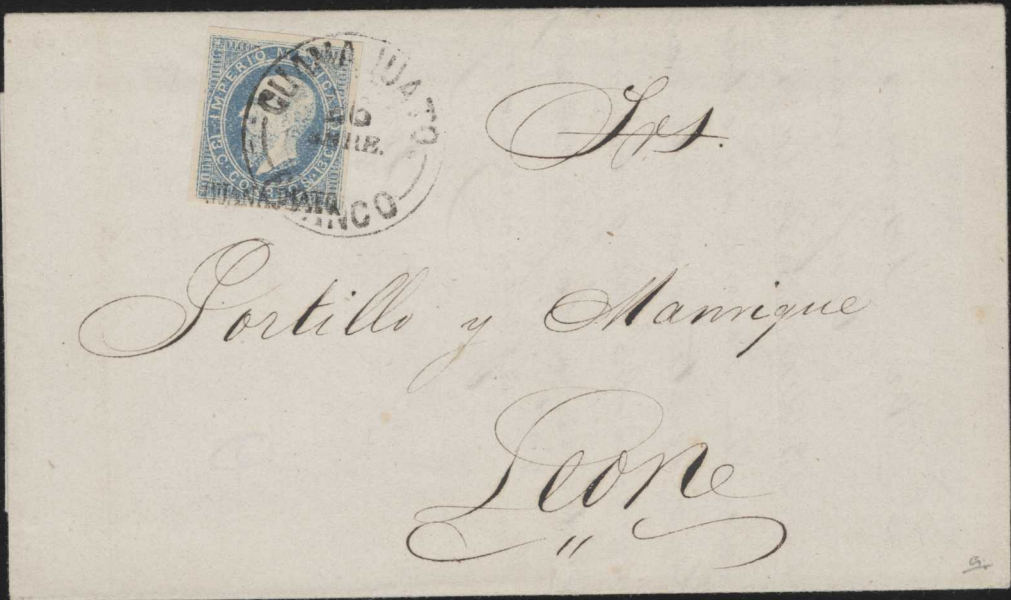 IMPERIO MEXICANO
13 C.
GUANAJUATO
GUANAJUATO
FRANCO
Srs.
Portillo y Manrique
Leon